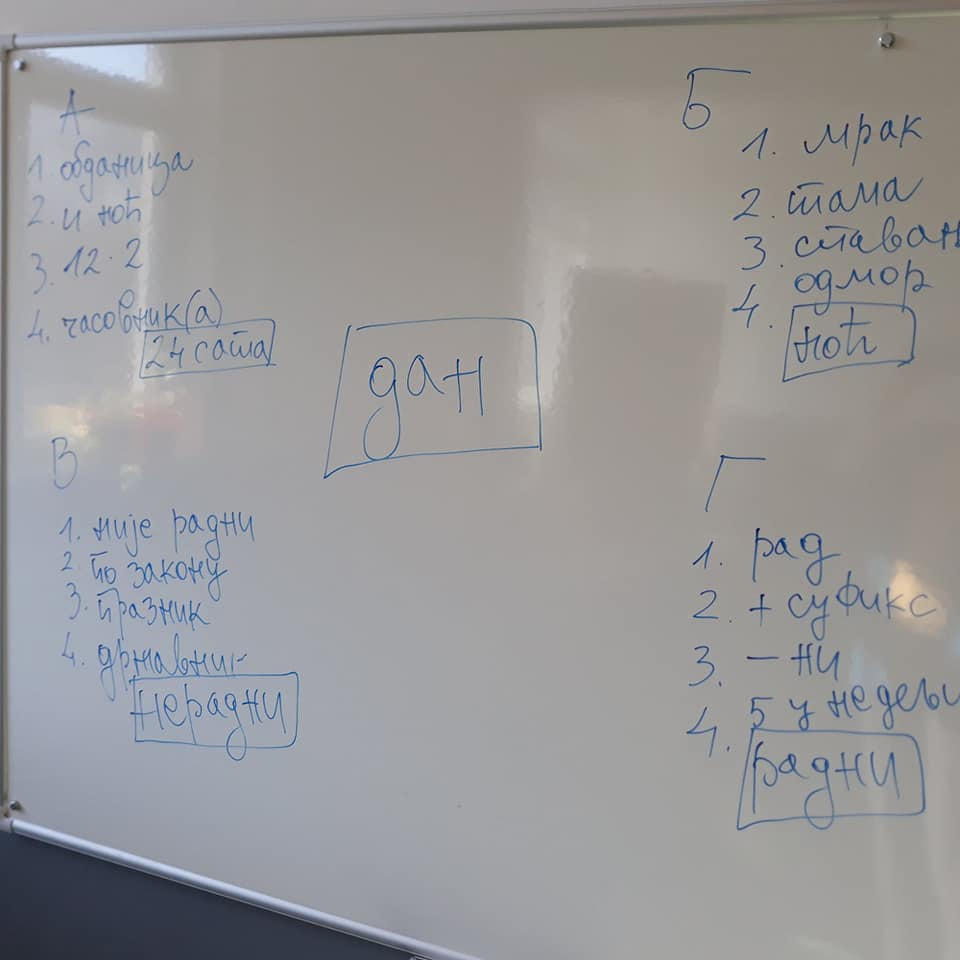 А
1. обданица
2. и ноћ
3. 12 · 2
4. часовник(а)
24 сата
дан
Б
1. мрак
2. тама
3. спаван
одмор
4.
ноћ
В
1. није радни
2. по закону
3. празник
4. државни
нерадни
Г
1. рад
2. + суфикс
3. – ни
4. 5 у недељи
радни